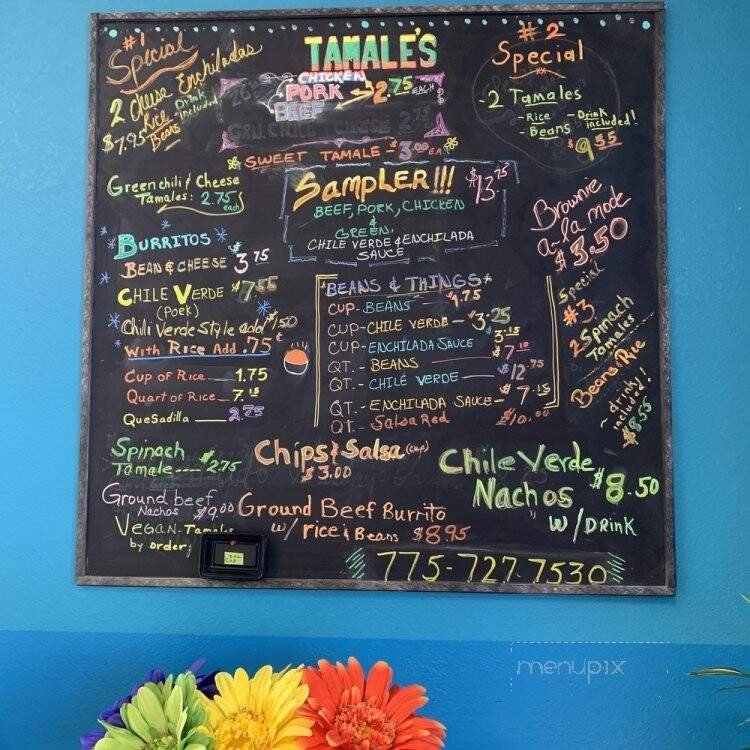 #1
Special
2 Cheese Enchiladas
Rice
Beans
Drink included
$7.95
TAMALE'S
CHICKEN
PORK
BEEF
2.75 EACH
GRN. CHILE CHEESE 2.75
SWEET TAMALE - $3.00 EA.
#2
Special
-2 Tamales
-Rice
-Beans
-Drink included!
$9.55
Green chili & Cheese
Tamales: 2.75
each
SAMPLER!!! $13.75
BEEF, PORK, CHICKEN
&
GREEN.
CHILE VERDE & ENCHILADA
SAUCE
Brownie
a-la mode
$3.50
BURRITOS
BEAN & CHEESE $3.75
CHILE VERDE $7.55
(PORK)
Chili Verde Style add $1.50
With Rice Add .75¢
Cup of Rice 1.75
Quart of Rice 7.15
QueSadilla 2.75
BEANS & THINGS
CUP- BEANS $1.75
CUP- CHILE VERDE - $3.25
CUP- ENCHILADA SAUCE $3.15
QT. - BEANS $7.10
QT. - CHILE VERDE $12.75
QT. - ENCHILADA SAUCE - $7.15
QT. - Salsa Red $10.00
Special
#3
2 Spinach
Tamales
Beans & Rice
~ drink!
included!
$8.55
Spinach
Tamale ---- $2.75
Chips & Salsa (cup)
$3.00
Chile Verde
Nachos $8.50
w/ DRINK
Ground beef
Nachos $9.00
Vegan - Tamales
by order;
Ground Beef Burrito
w/ rice & Beans $8.95
775-727-7530
menupix